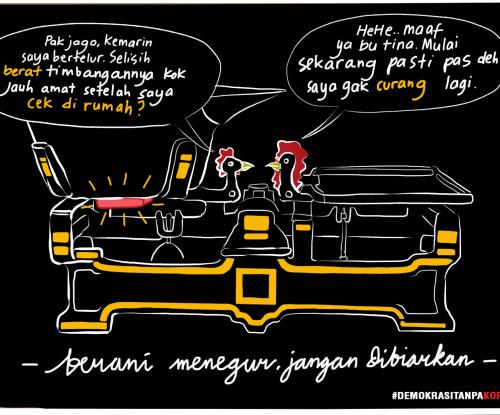 Pak jago, kemarin
saya bertelur. Selisih
berat timbangannya kok
jauh amat setelah saya
cek di rumah?
HeHe.. maaf
ya bu tina. Mulai
sekarang pasti pas deh
saya gak curang lagi.
- berani menegur, jangan dibiarkan -
#DEMOKRASITANPAKOR